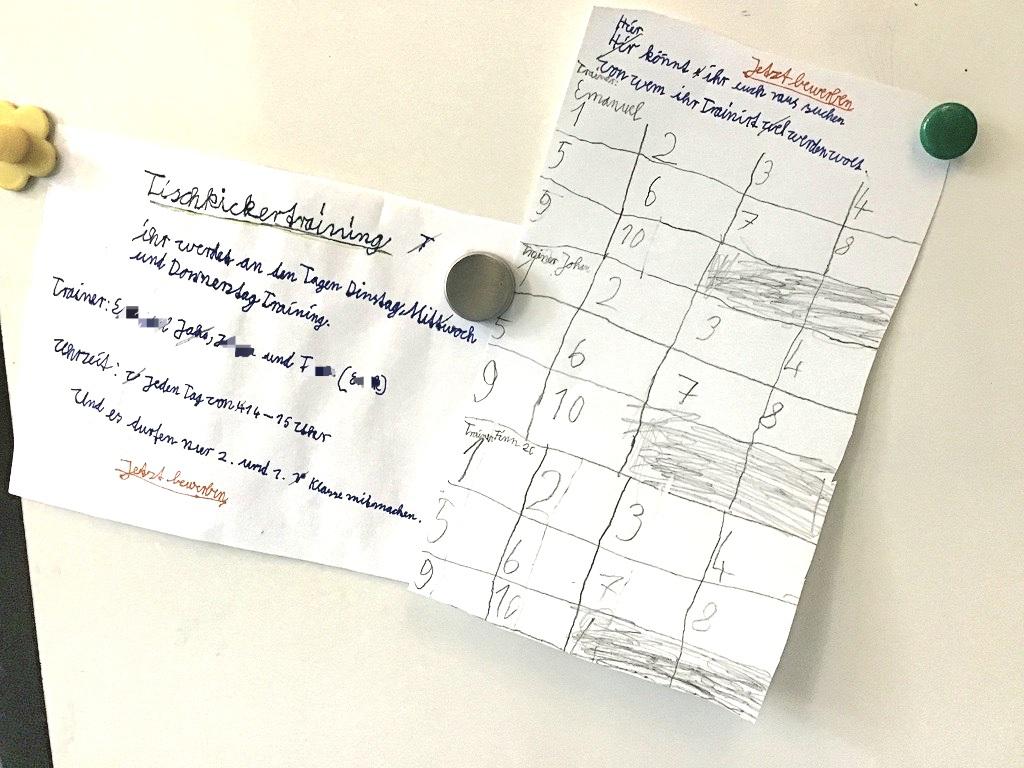 Tischkickertraining
ihr werdet an den Tagen Dinstag, Mittwoch
und Donnerstag Training.
Trainer: und
Uhrzeit: jeden Tag von 14-15 Uhr
Und es dürfen nur 2. und 1. Klasse mitmachen.
Jetzt bewerben
Hier
Hir könnt ihr euch raus suchen
Jetzt bewerben
von wem ihr Trainirt werden wolt.
Trainer:
Emanuel
1 2 3 4
5 6 7 8
9 10
Trainer John
1 2 3 4
5 6 7 8
9 10
Trainer Finn 2c
1 2 3 4
5 6 7 8
9 10